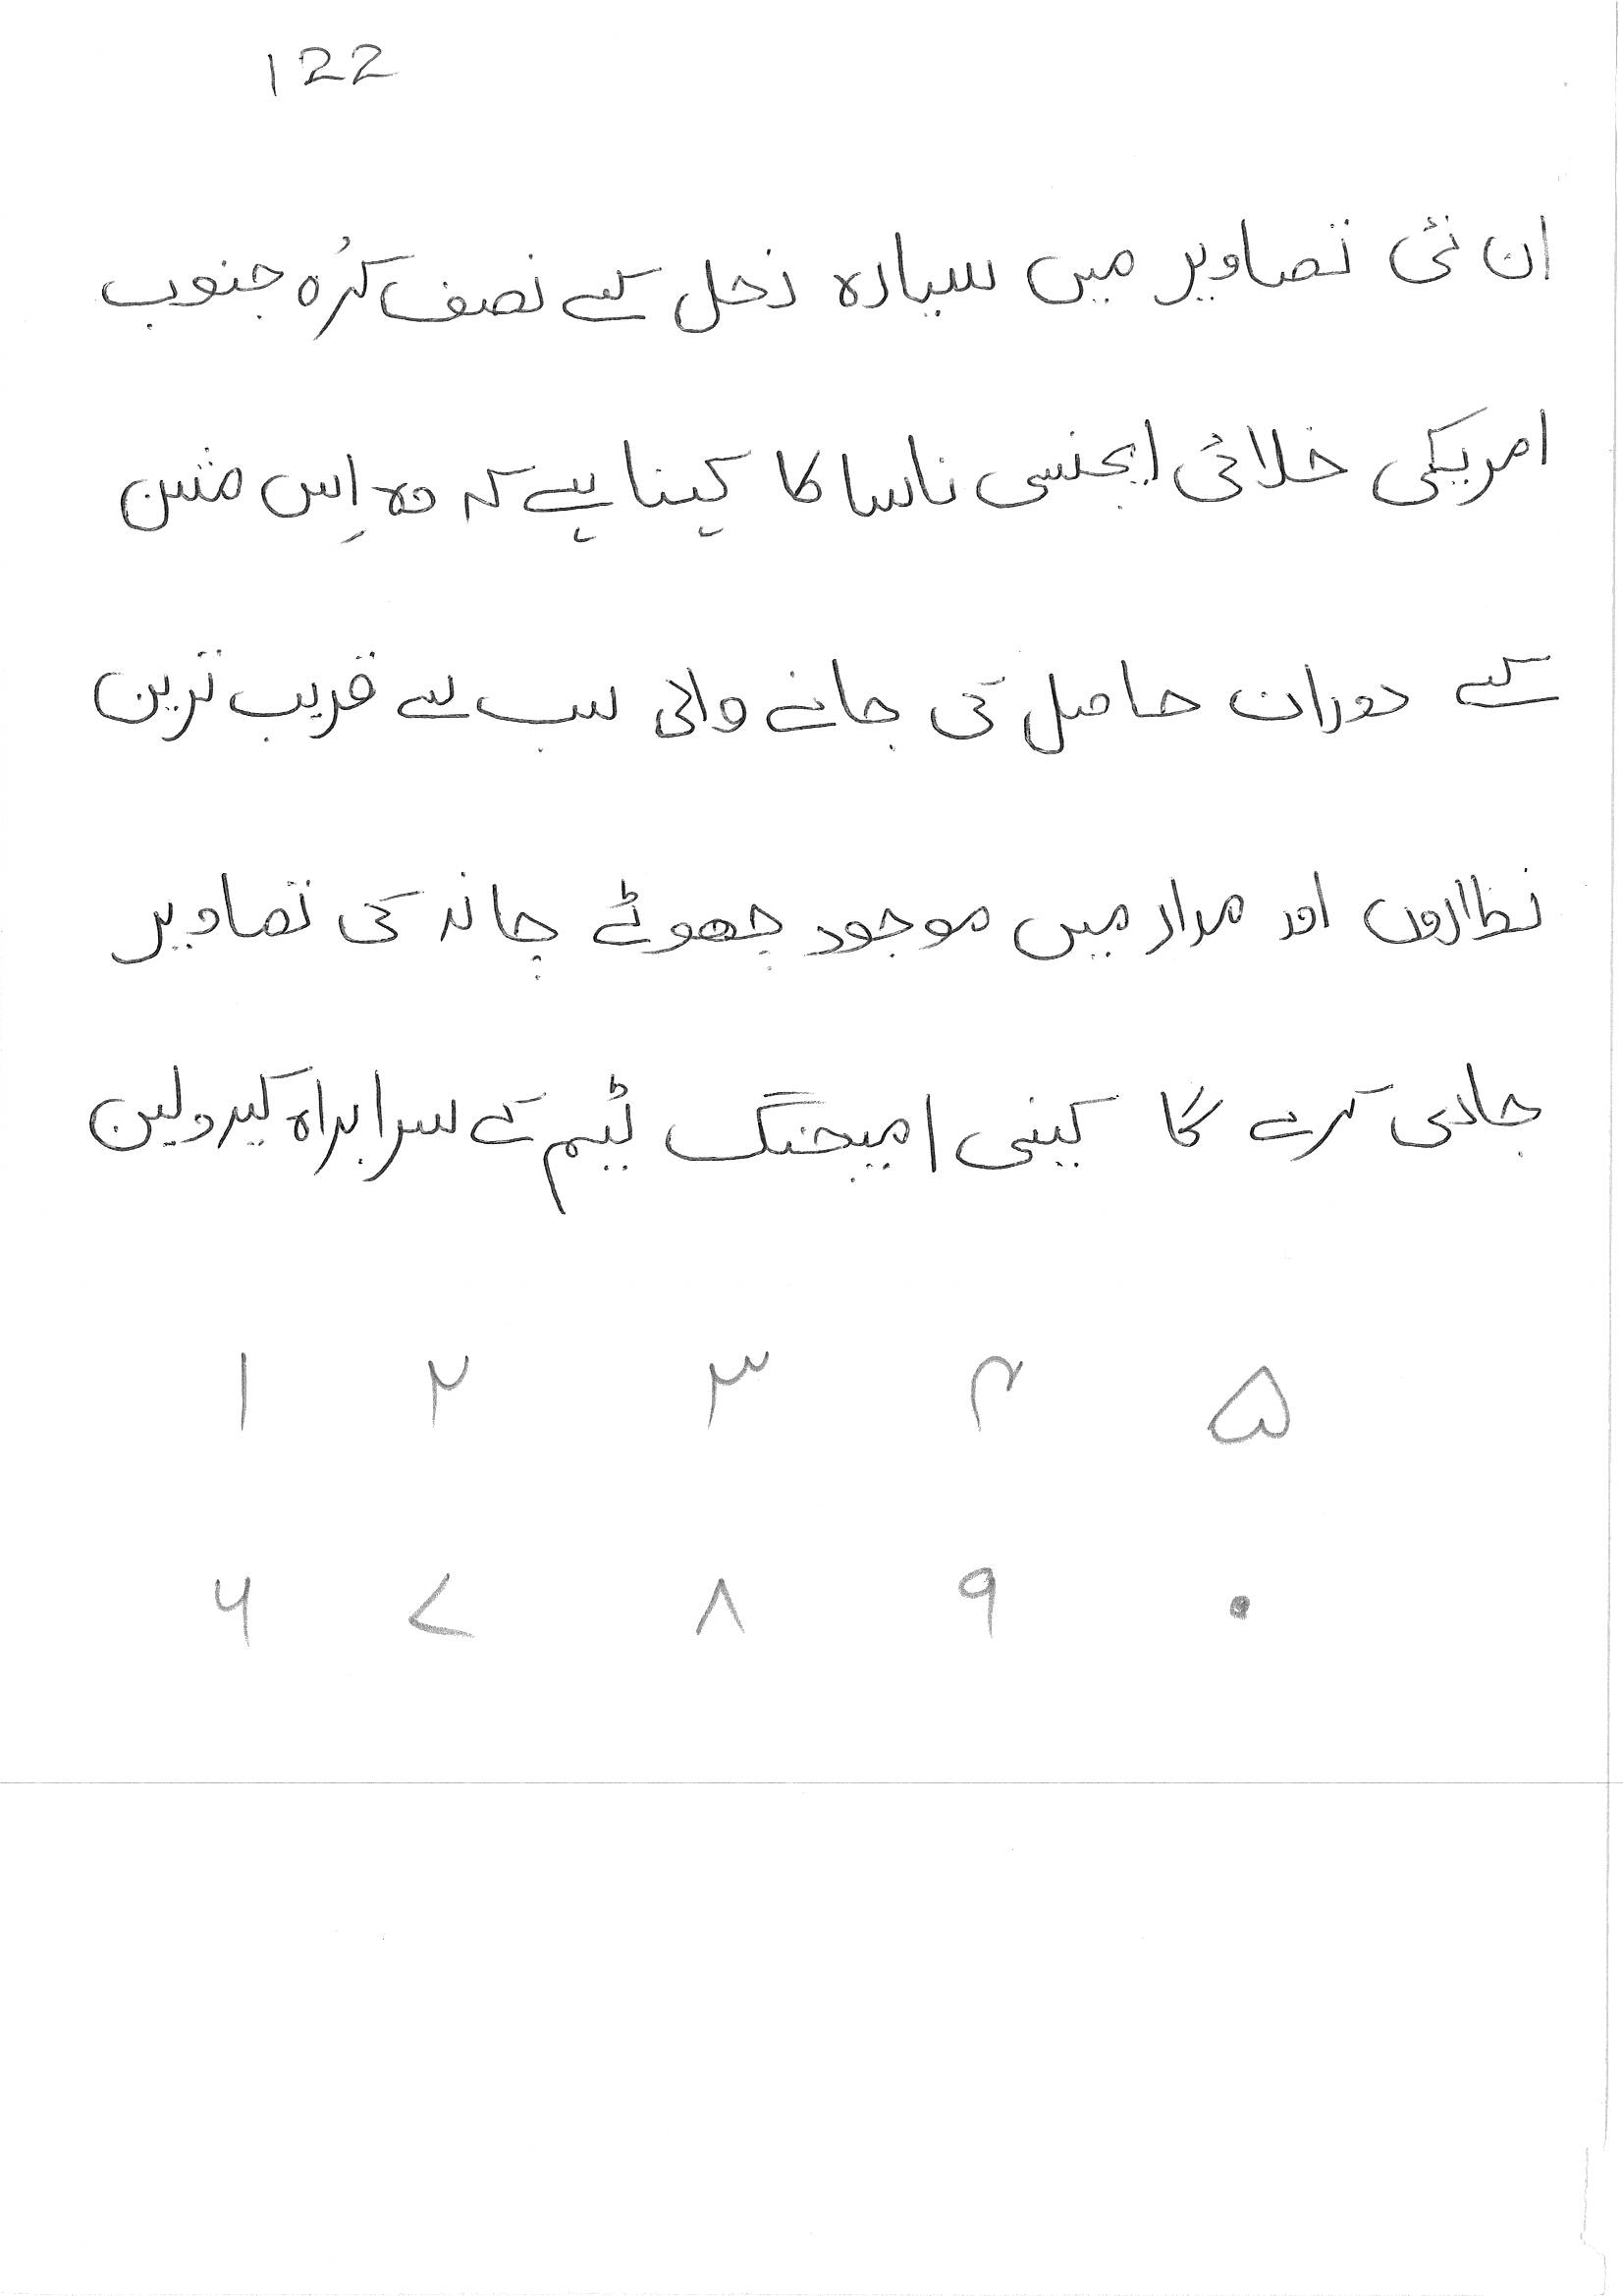 122
ان نئی تصاویر میں سیارہ زحل کے نصف کرُہ جنوب
امریکی خلائی ایجنسی ناسا کا کہنا ہے کہ وہ اِس مشن
کے دوران حاصل کی جانے والی سب سے قریب ترین
نظاروں اور مدار میں موجود چھوٹے چاند کی تصاویر
جاری کرے گا کینی امیجنگ ٹیم کے سرابراہ کیرولین
۱ ۲ ۳ ۴ ۵
۶ ۷ ۸ ۹ ۰